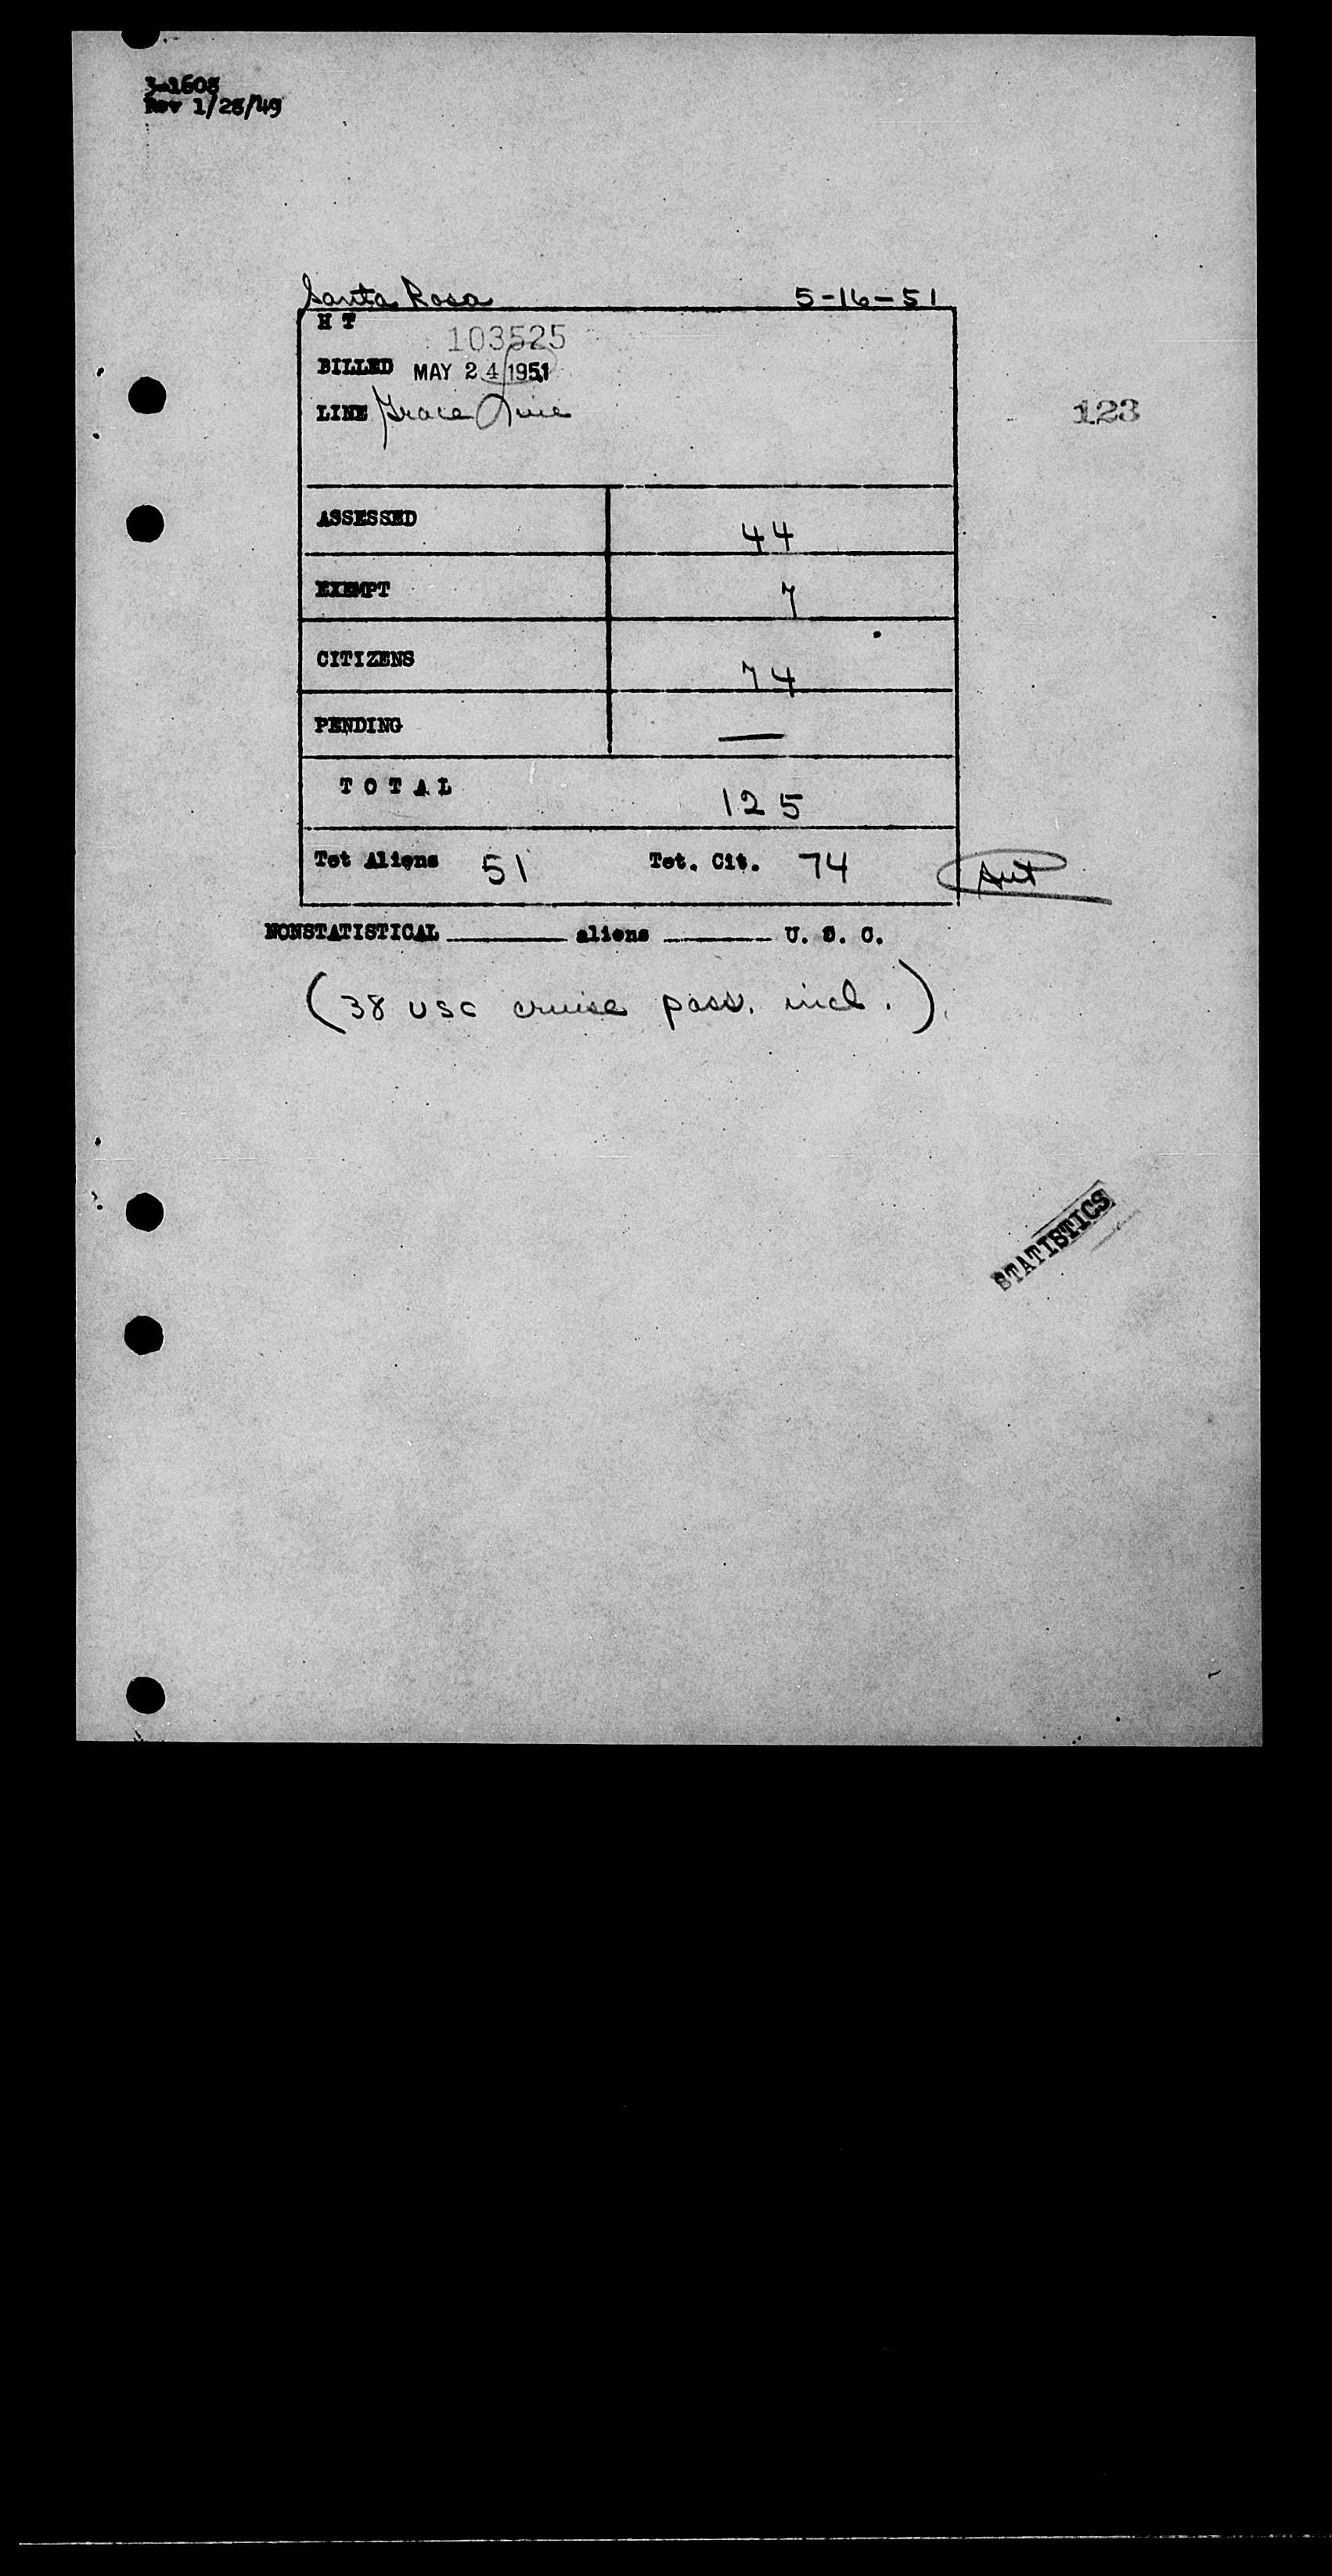 3-1608
Rev 1/28/49
Santa Rosa 5-16-51
H T
103525
BILLED MAY 24 1951
LINE Grace Line
123
ASSESSED 44
EXEMPT 7
CITIZENS 74
PENDING —
TOTAL 125
Tot Aliens 51 Tot. Cit. 74
NONSTATISTICAL ______ aliens ______ U. S. C.
(38 USC cruise pass. incl.)
STATISTICS